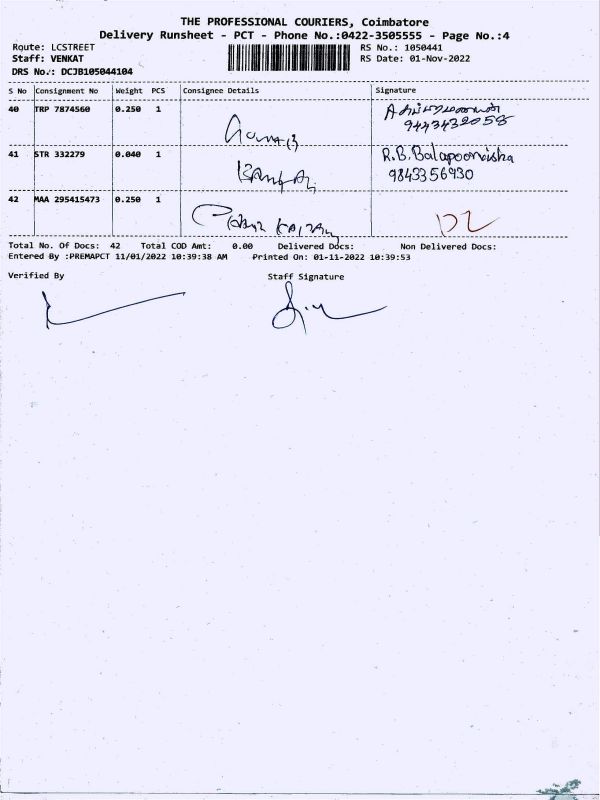 THE PROFESSIONAL COURIERS, Coimbatore
Delivery Runsheet - PCT - Phone No.:0422-3505555 - Page No.:4
Route: LCSTREET
RS No.: 1050441
Staff: VENKAT
RS Date: 01-Nov-2022
DRS No.: DCJB105044104
S No Consignment No Weight PCS Consignee Details Signature
40 TRP 7874560 0.250 1
9443432058
41 STR 332279 0.040 1 R.B. Balapoornisha
9843356930
42 MAA 295415473 0.250 1
Total No. Of Docs: 42 Total COD Amt: 0.00 Delivered Docs: Non Delivered Docs:
Entered By :PREMAPCT 11/01/2022 10:39:38 AM Printed On: 01-11-2022 10:39:53
Verified By Staff Signature